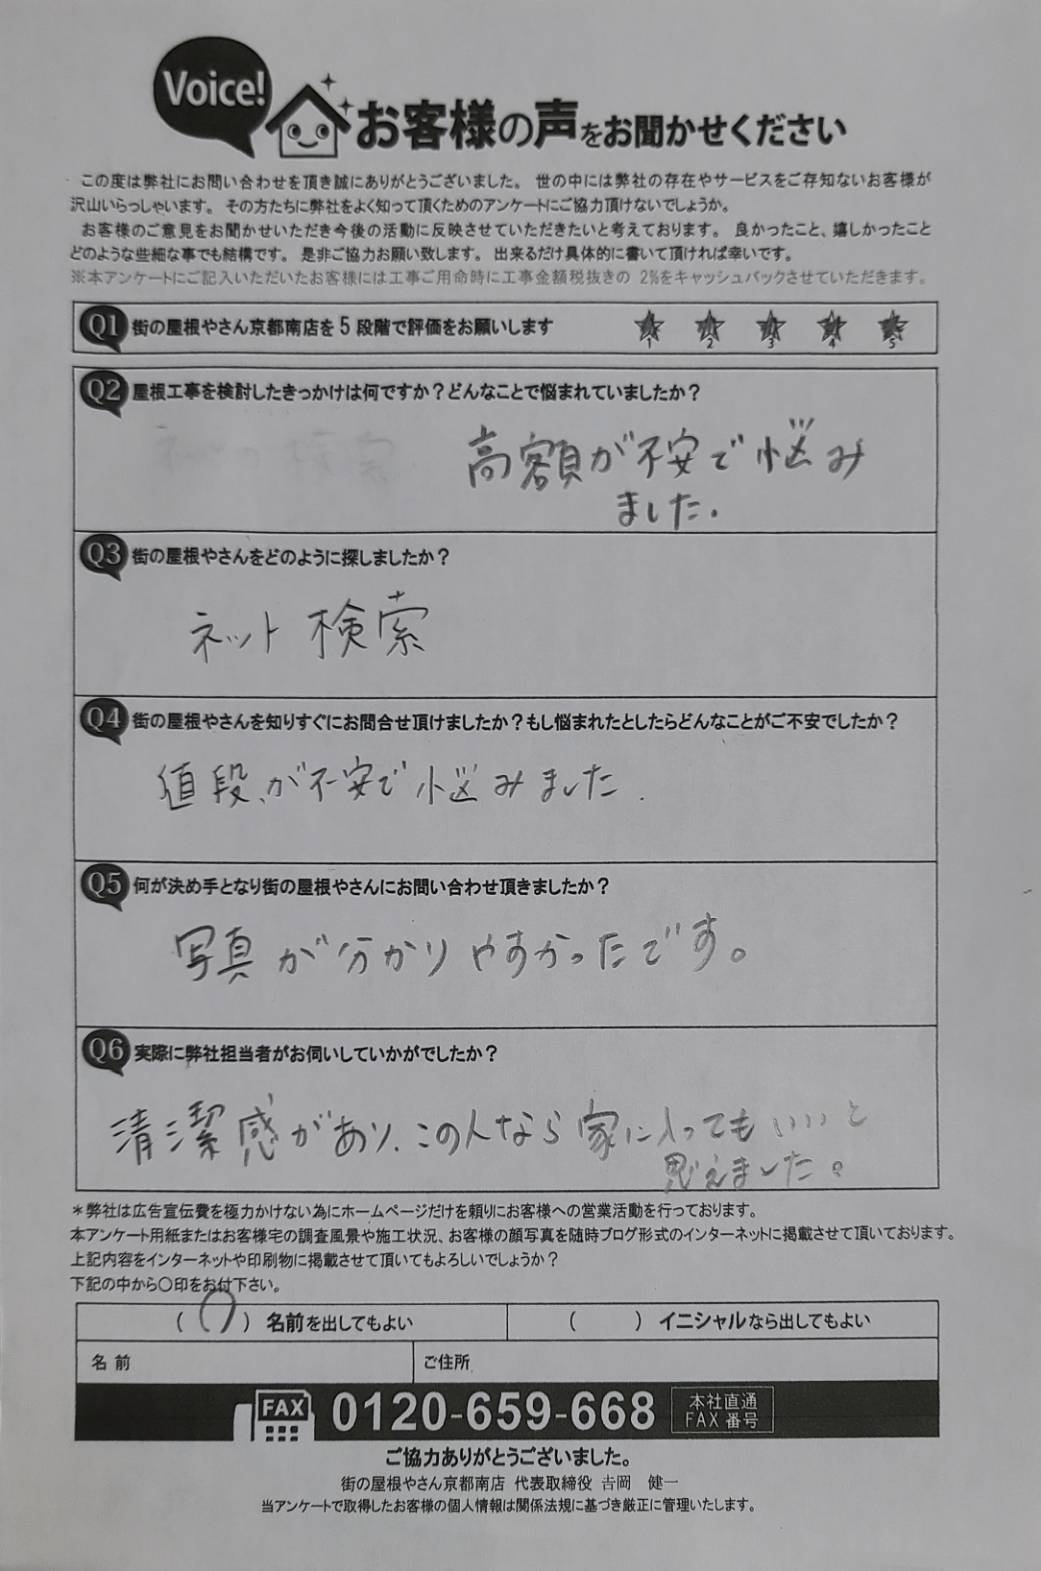 Voice!
お客様の声をお聞かせください
この度は弊社にお問い合わせを頂き誠にありがとうございました。世の中には弊社の存在やサービスをご存知ないお客様が
沢山いらっしゃいます。その方たちに弊社をよく知って頂くためのアンケートにご協力頂けないでしょうか。
お客様のご意見をお聞かせいただき今後の活動に反映させていただきたいと考えております。良かったこと、嬉しかったこと
どのような些細な事でも結構です。是非ご協力お願い致します。出来るだけ具体的に書いて頂ければ幸いです。
※本アンケートにご記入いただいたお客様には工事ご用命時に工事金額税抜きの 2%をキャッシュバックさせていただきます。
Q1 街の屋根やさん京都南店を5段階で評価をお願いします 1 2 3 4 5
Q2 屋根工事を検討したきっかけは何ですか？どんなことで悩まれていましたか？
高額が不安で悩み
ました.
Q3 街の屋根やさんをどのように探しましたか？
ネット検索
Q4 街の屋根やさんを知りすぐにお問合せ頂けましたか？もし悩まれたとしたらどんなことがご不安でしたか？
値段が不安で悩みました.
Q5 何が決め手となり街の屋根やさんにお問い合わせ頂きましたか？
写真が分かりやすかったです。
Q6 実際に弊社担当者がお伺いしていかがでしたか？
清潔感があり、この人なら家に入ってもいいと
思えました。
＊弊社は広告宣伝費を極力かけない為にホームページだけを頼りにお客様への営業活動を行っております。
本アンケート用紙またはお客様宅の調査風景や施工状況、お客様の顔写真を随時ブログ形式のインターネットに掲載させて頂いております。
上記内容をインターネットや印刷物に掲載させて頂いてもよろしいでしょうか？
下記の中から〇印をお付下さい。
（〇）名前を出してもよい （　）イニシャルなら出してもよい
名前 ご住所
FAX 0120-659-668 本社直通 FAX番号
ご協力ありがとうございました。
街の屋根やさん京都南店 代表取締役 吉岡 健一
当アンケートで取得したお客様の個人情報は関係法規に基づき厳正に管理いたします。